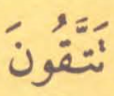 تَتَّقُونَ